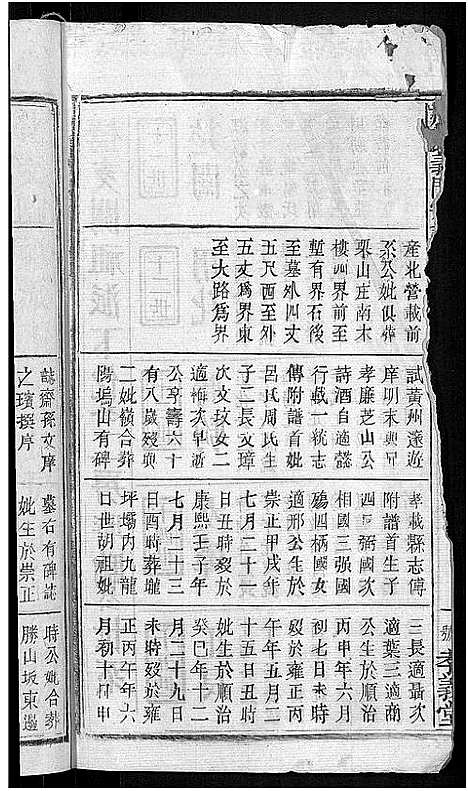 義門
號 孝義堂
產北營載前
系公妣俱葬
栗山庄南木
樓四界前至
塹有界石後
至墓外四丈
五尺西至外
五丈爲界東
至大路爲界
試黃州遂遊
庠明末與兄
孝廉芝山公
詩酒自適懿
行載一統志
傳附譜首妣
呂氏周氏生
子二長文璋
次文玟女二
適梅次早逝
公享壽六十
有八歲歿與
二妣嶺合葬
陽塢山有碑
誌齋孫文璋
之璸撰序
孝載縣志傳
附譜首生子
四 弼國次
相國三强國
殤四柄國女
適邢公生於
崇正甲戌年
七月二十一
日丑時歿於
康熙壬子年
七月二十三
日酉時葬壠
坪壩内九龍
口世胡祖妣
墓右有碑誌
妣生於崇正
三長適聶次
適葉三適商
公生於順治
丙申年六月
初七日未時
歿於雍正丙
午年五月二
十五日丑時
妣生於順治
癸巳年十二
月二十九日
未時歿於雍
正丙午年六
月初十日申
時公妣合葬
勝山坂東邊